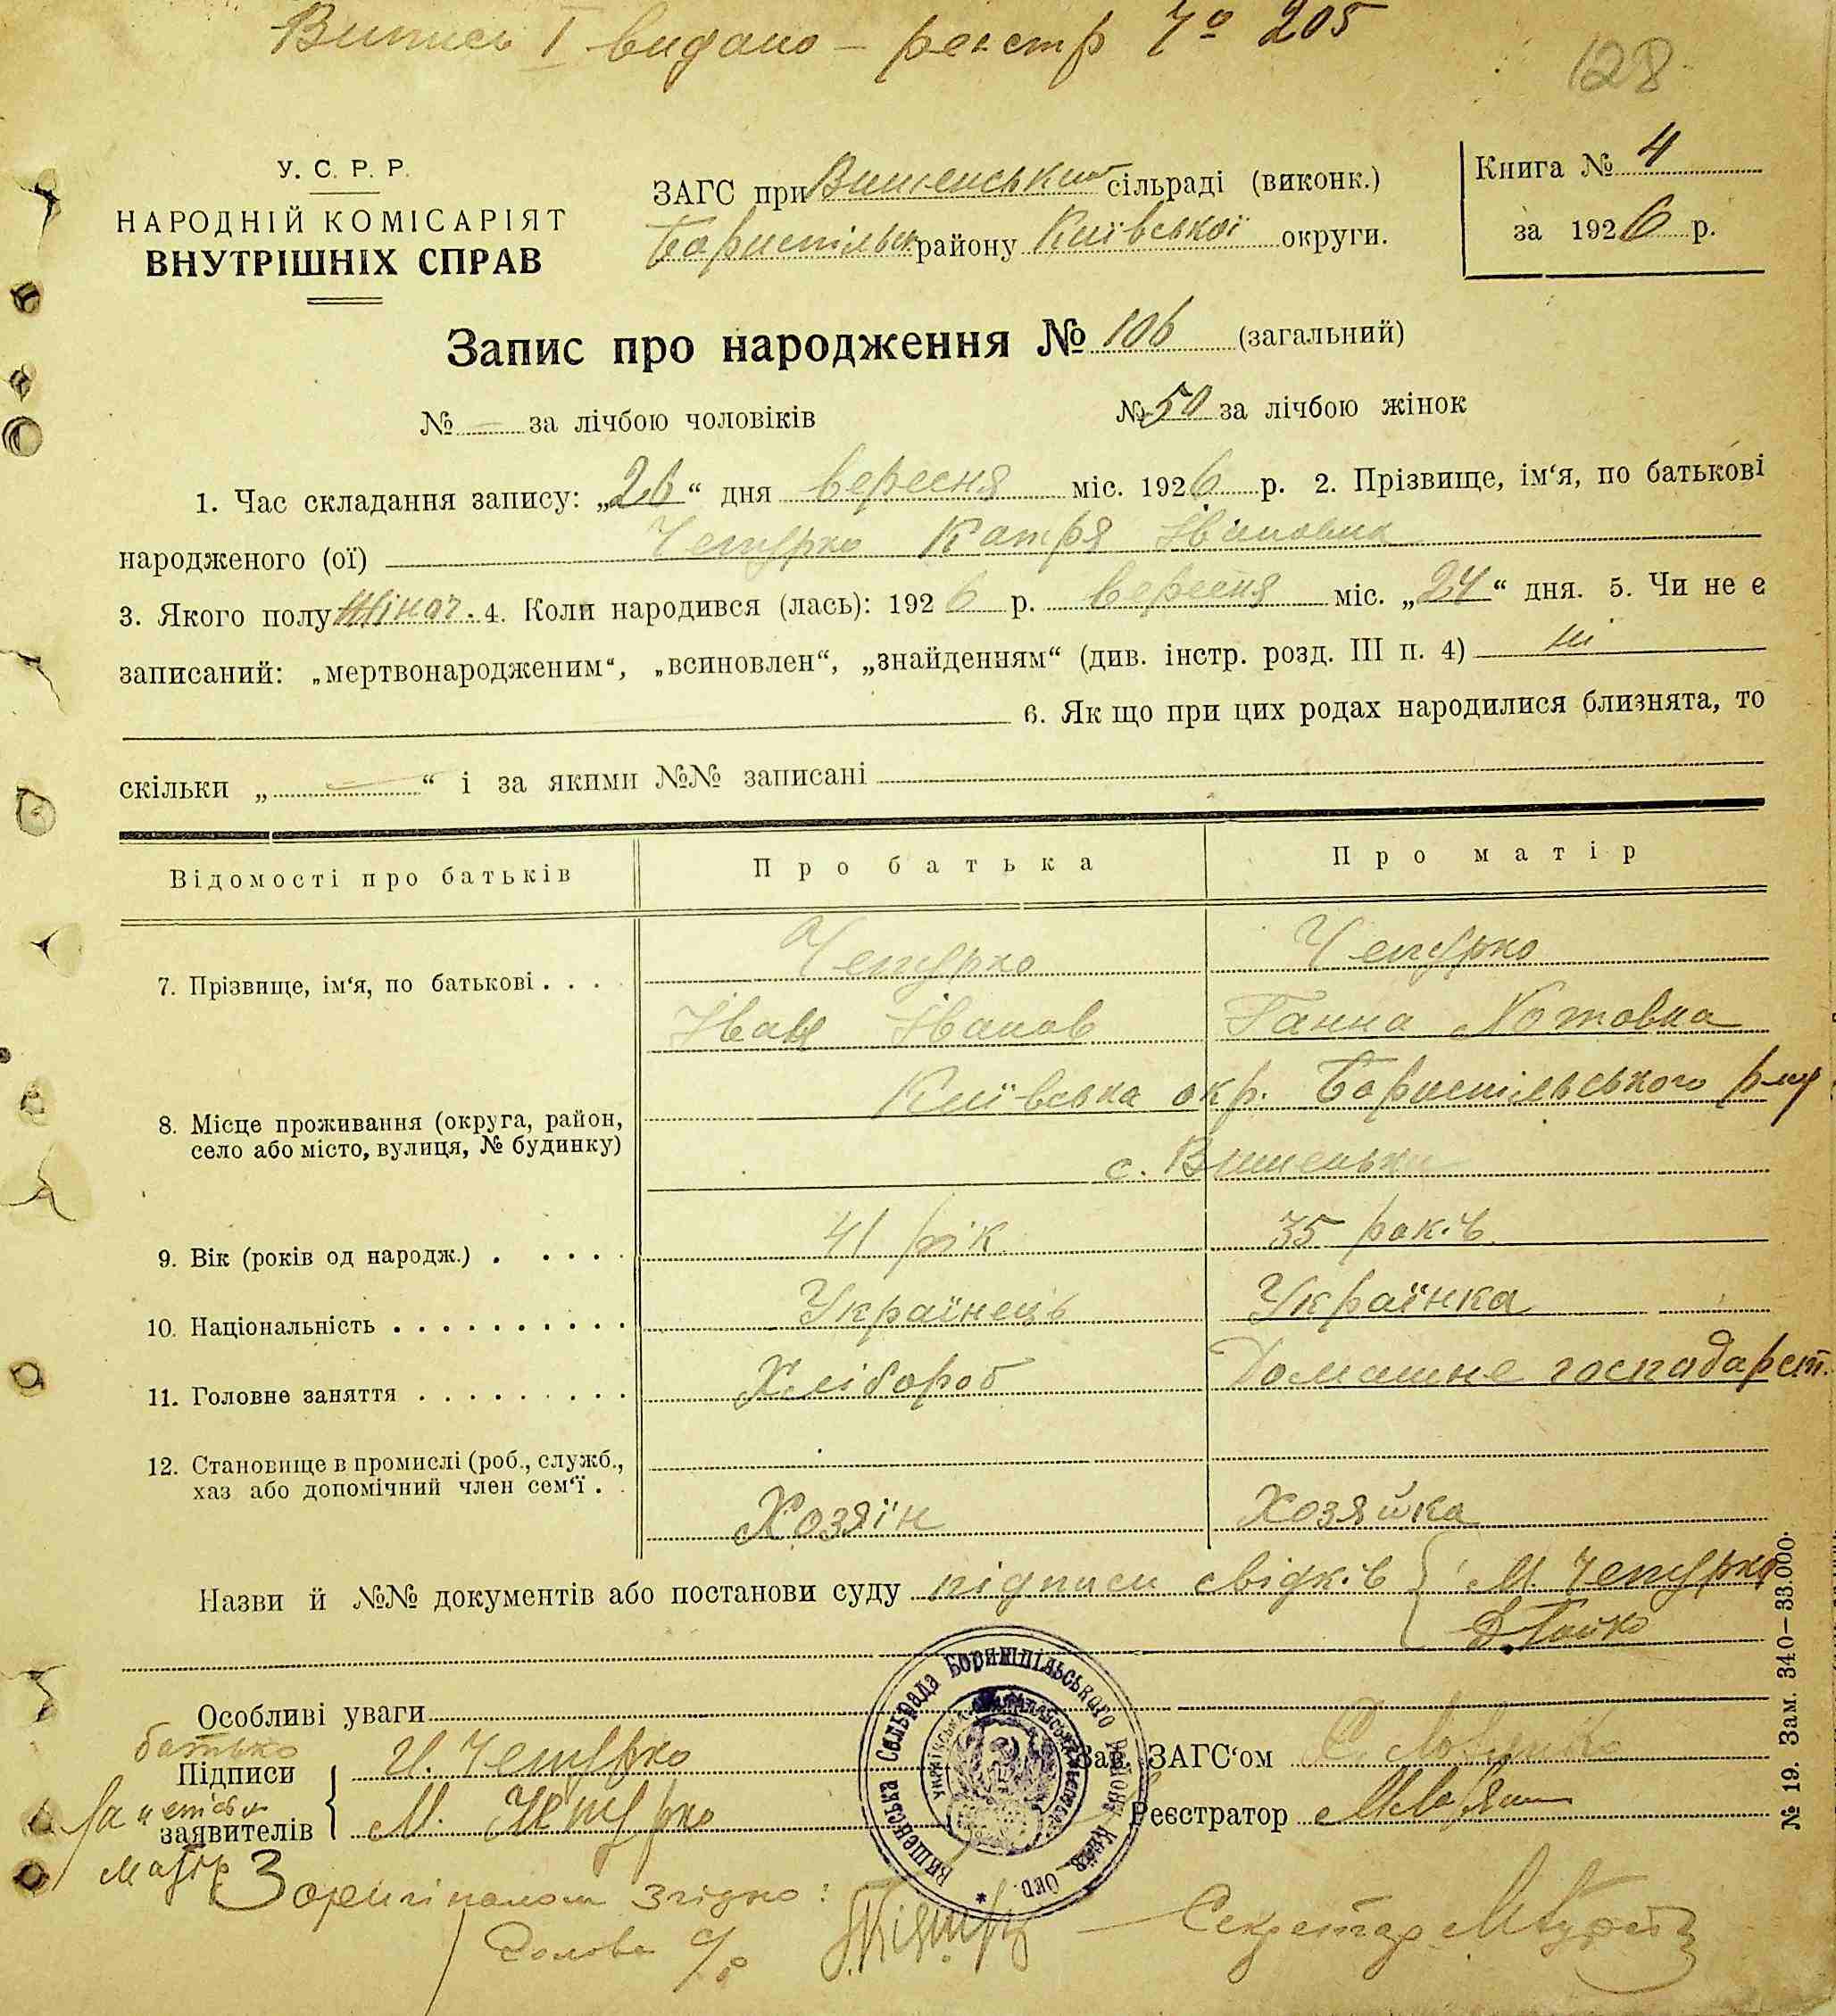 Випись I видано – реєстр № 205
128
У. С. Р. Р.
НАРОДНІЙ КОМІСАРІЯТ
ВНУТРІШНІХ СПРАВ
ЗАГС при Вишенський сільраді (виконк.)
Бориспільск району Київської округи.
Книга № 4
за 1926 р.
Запис про народження № 106 (загальний)
№ — за лічбою чоловіків
№ 50 за лічбою жінок
1. Час складання запису: „26“ дня вересня міс. 1926 р. 2. Прізвище, ім‘я, по батькові
народженого (ої) Чепурко Катря Івановна
3. Якого полу жіноч. 4. Коли народився (лась): 1926 р. вересня міс. „24“ дня. 5. Чи не є
записаний: „мертвонародженим“, „всиновлен“, „знайденням“ (див. інстр. розд. III п. 4) ні
6. Як що при цих родах народилися близнята, то
скільки „ — “ і за якими №№ записані
Відомості про батьків Про батька Про матір
7. Прізвище, ім‘я, по батькові . . . . Чепурко Чепурко
Іван Іванов Ганна
8. Місце проживання (округа, район, Київська окр. Бориспільського р-ну
село або місто, вулиця, № будинку) с. Вишеньки
9. Вік (років од народж.) . . . . . 41 рік 35 років
10. Національність . . . . . . . . . . Українець Українка
11. Головне заняття . . . . . . . . . Хлібороб Домашне господарст.
12. Становище в промислі (роб., служб.,
хаз або допомічний член сем‘ї . . Хозяїн Хозяйка
Назви й №№ документів або постанови суду підписи свідків { М. Чепурко
Особливі уваги
батько
Підписи И. Чепурко Зав. ЗАГС‘ом
заявителів { М. Чепурко Реєстратор
матір
Вишенська Сельрада Бориспільського Району Київ. Окр.
З оригіналом згідно:
Голова с/р Секретар
№ 19. Зам. 340–33.000.